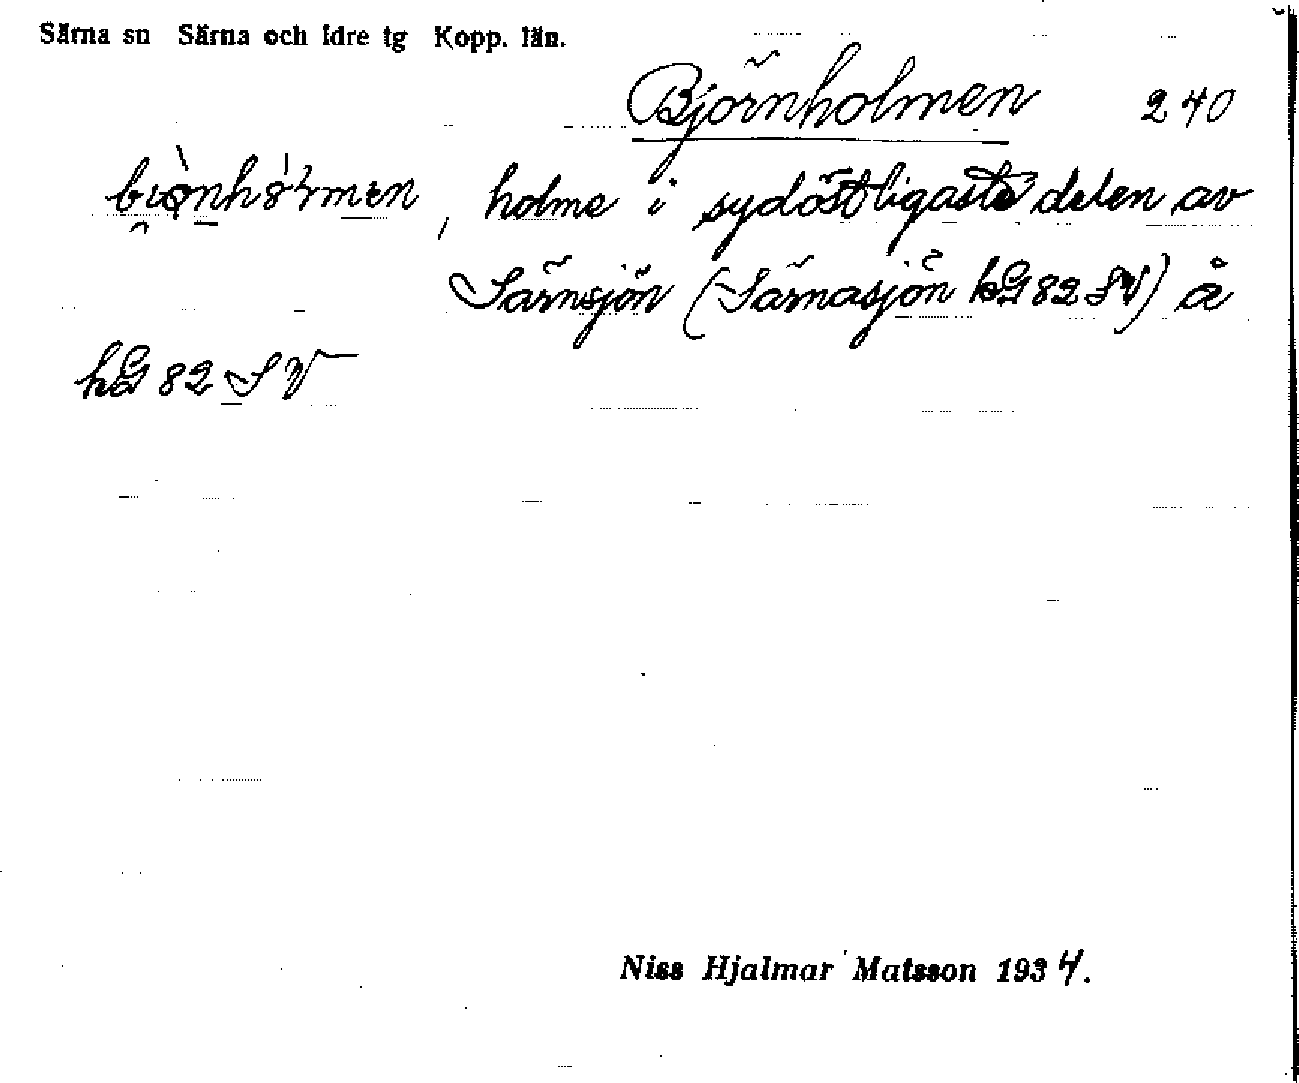 Särna sn Särna och Idre tg Kopp. län.
Björnholmen 240
, holme i sydöstligaste delen av
Särnsjön (Särnasjön hG 82 SV) å
hG 82 SV
Niss Hjalmar Matsson 1934.